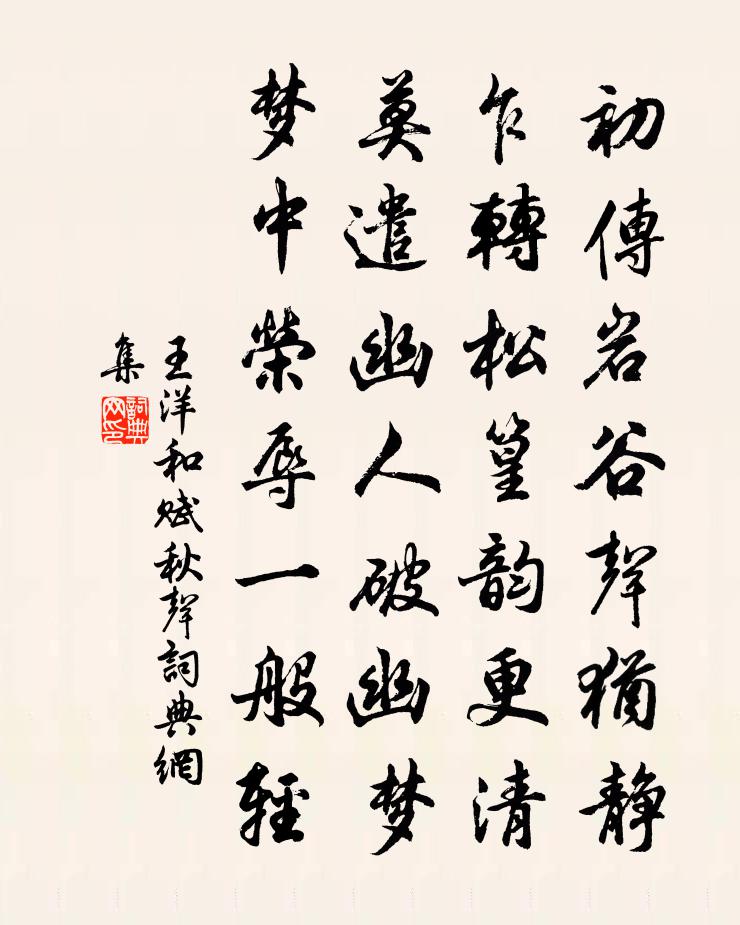 初傳岩谷聲猶静
乍轉松篁韵更清
莫遣幽人破幽梦
梦中榮辱一般輕
王洋和赋秋聲詞典網
集
詞典网印